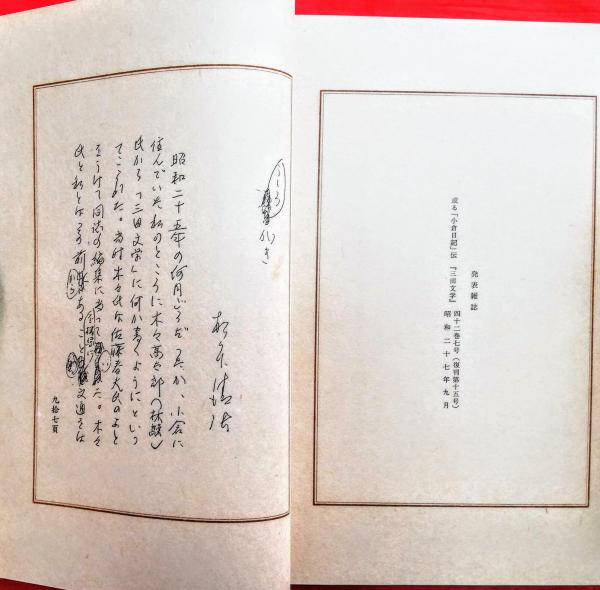 発表雑誌
或る「小倉日記」伝 『三田文学』 四十二巻七号(復刊第十五号)
昭和二十七年九月
うしろがき
松本清張
昭和二十五年の何月ごろだったか、小倉に
住んでいた私のところに木々高太郎(林髞)
氏から「三田文学」に何か書くようにといっ
てこられた。当時木々氏は佐藤春夫氏のあと
をうけて同誌の編集に当って
た。木々
氏と私とはその前
あること
文通をは
九拾七頁